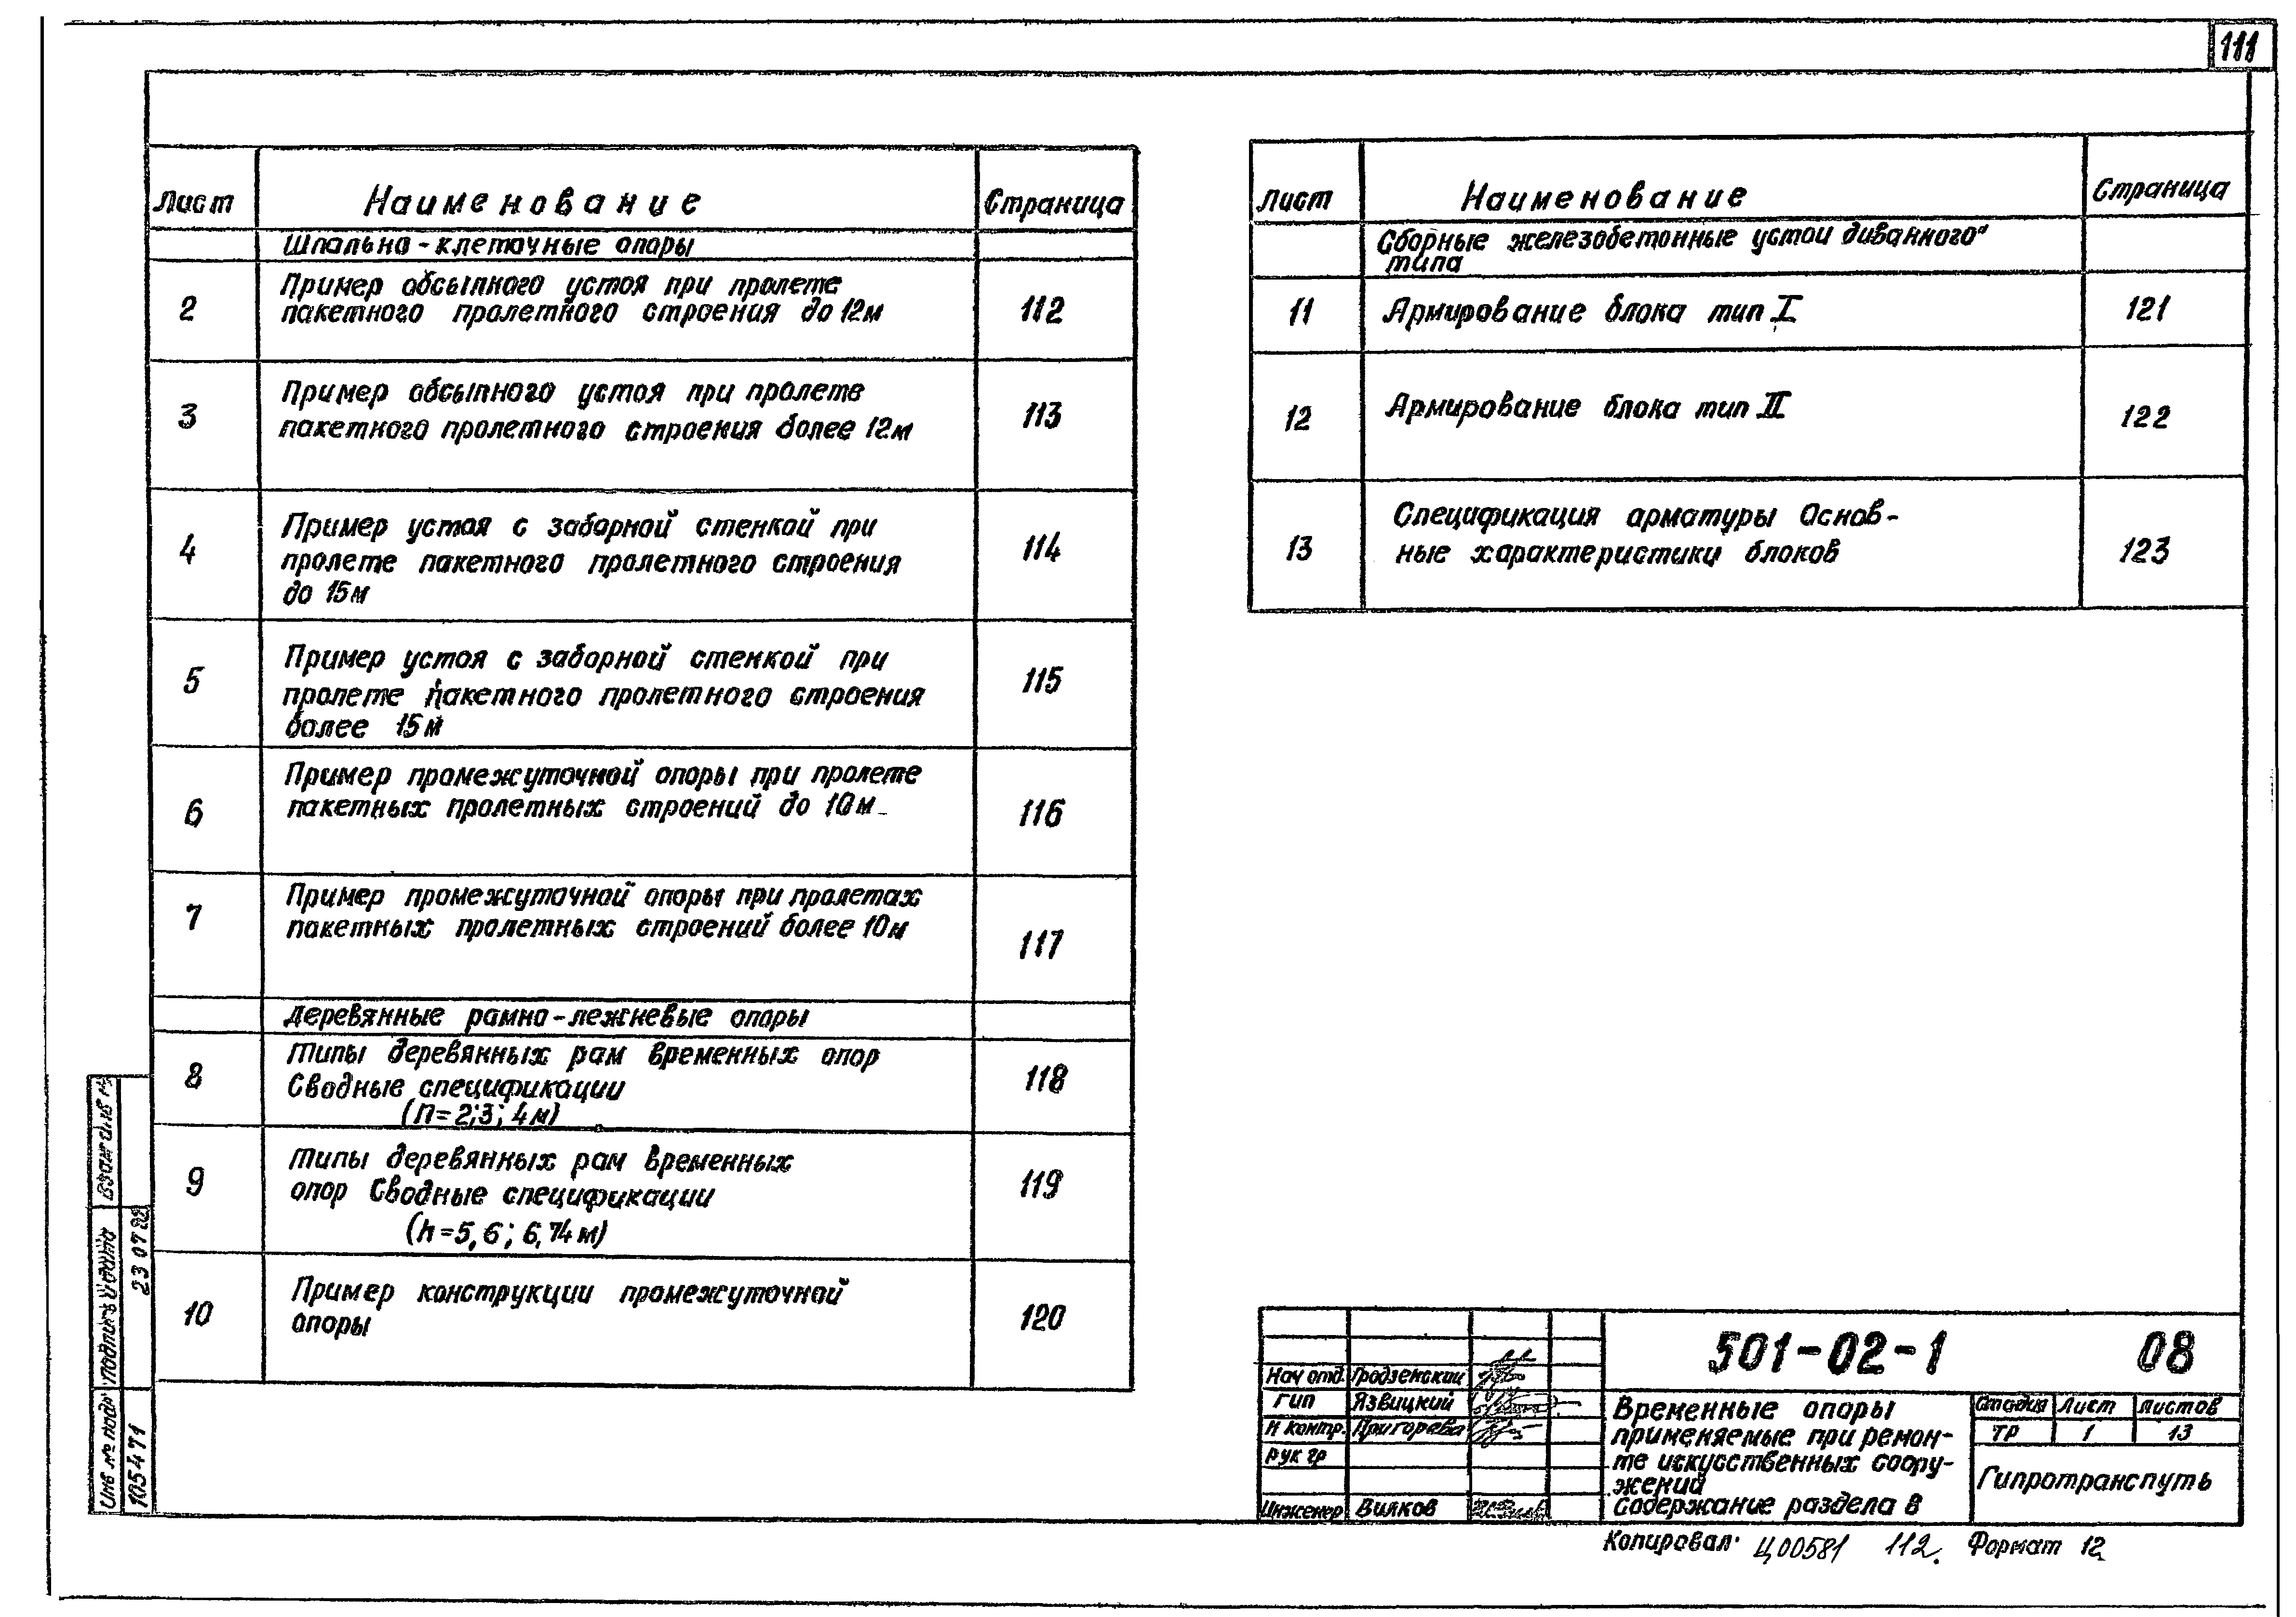 111
Лист Наименование Страница
Шпально-клеточные опоры
2 Пример обсыпного устоя при пролете 112
пакетного пролетного строения до 12м
3 Пример обсыпного устоя при пролете 113
пакетного пролетного строения более 12м
4 Пример устоя с заборной стенкой при 114
пролете пакетного пролетного строения
до 15м
5 Пример устоя с заборной стенкой при 115
пролете пакетного пролетного строения
более 15м
6 Пример промежуточной опоры при пролете 116
пакетных пролетных строений до 10м
7 Пример промежуточной опоры при пролетах 117
пакетных пролетных строений более 10м
Деревянные рамно-лежневые опоры
8 Типы деревянных рам временных опор 118
Сводные спецификации
(h=2;3;4м)
9 Типы деревянных рам временных 119
опор Сводные спецификации
(h=5,6; 6,74м)
10 Пример конструкции промежуточной 120
опоры
Лист Наименование Страница
Сборные железобетонные устои диванного"
типа
11 Армирование блока тип I 121
12 Армирование блока тип II 122
13 Спецификация арматуры Основ- 123
ные характеристики блоков
501-02-1 08
Нач отд. Гродзенский
ГИП Язвицкий
Н контр. Григорева
Рук гр
Инженер Вилков
Временные опоры
применяемые при ремон-
те искусственных соору-
жений
Содержание раздела 8
Стадия Лист Листов
ТР 1 13
Гипротранспуть
Копировал. Ц00581 112. Формат 12
Инв № подл Подпись и дата
105471 23 07